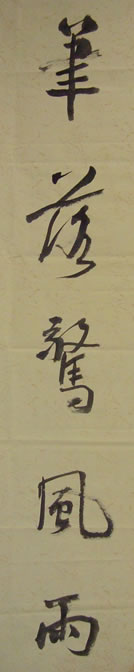 筆落驚風雨